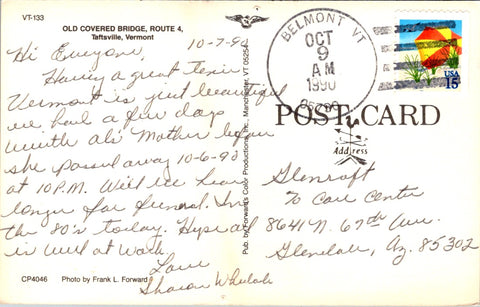 VT-133
OLD COVERED BRIDGE, ROUTE 4,
Taftsville, Vermont
10-7-90
Hi Everyone,
Having a great time
Vermont is just beautiful
we had a few days
with Als Mother before
she passed away 10-6-90
at 10 P.M. Will be here
longer for funeral. In
the 80's today. Hope all
is well at Work.
Love
Sharon
CP4046 Photo by Frank L. Forward
Pub. by Forward's Color Productions, Inc., Manchester, VT 05254
BELMONT VT
OCT
9
AM
1990
USA
15
POST CARD
Address
Glencroft
% Care Center
8641 N. 67th Ave.
Glendale, Az. 85302